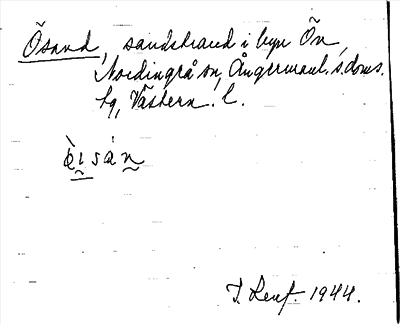 Ösand, sandstrand i byn Ön,
Nordingrå sn, Ångermanl. s. doms.
tg, Västern. l.
èisán
1944.